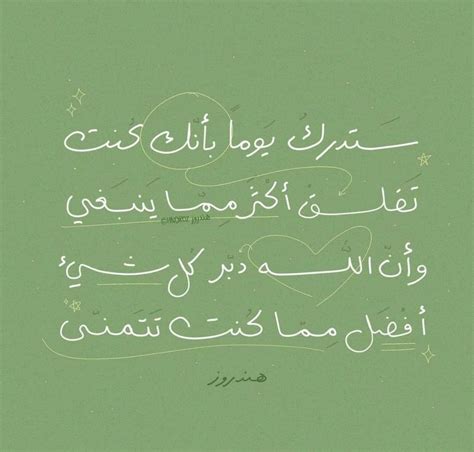 سَتدركُ يَومًا بأنّك كُنت
تَقلقُ أكْثَر مِمّا يَنبَغي
وأنّ اللّه دَبّر كُل شيءٍ
أفْضَل مِمّا كُنت تَتَمنّى
هندروز